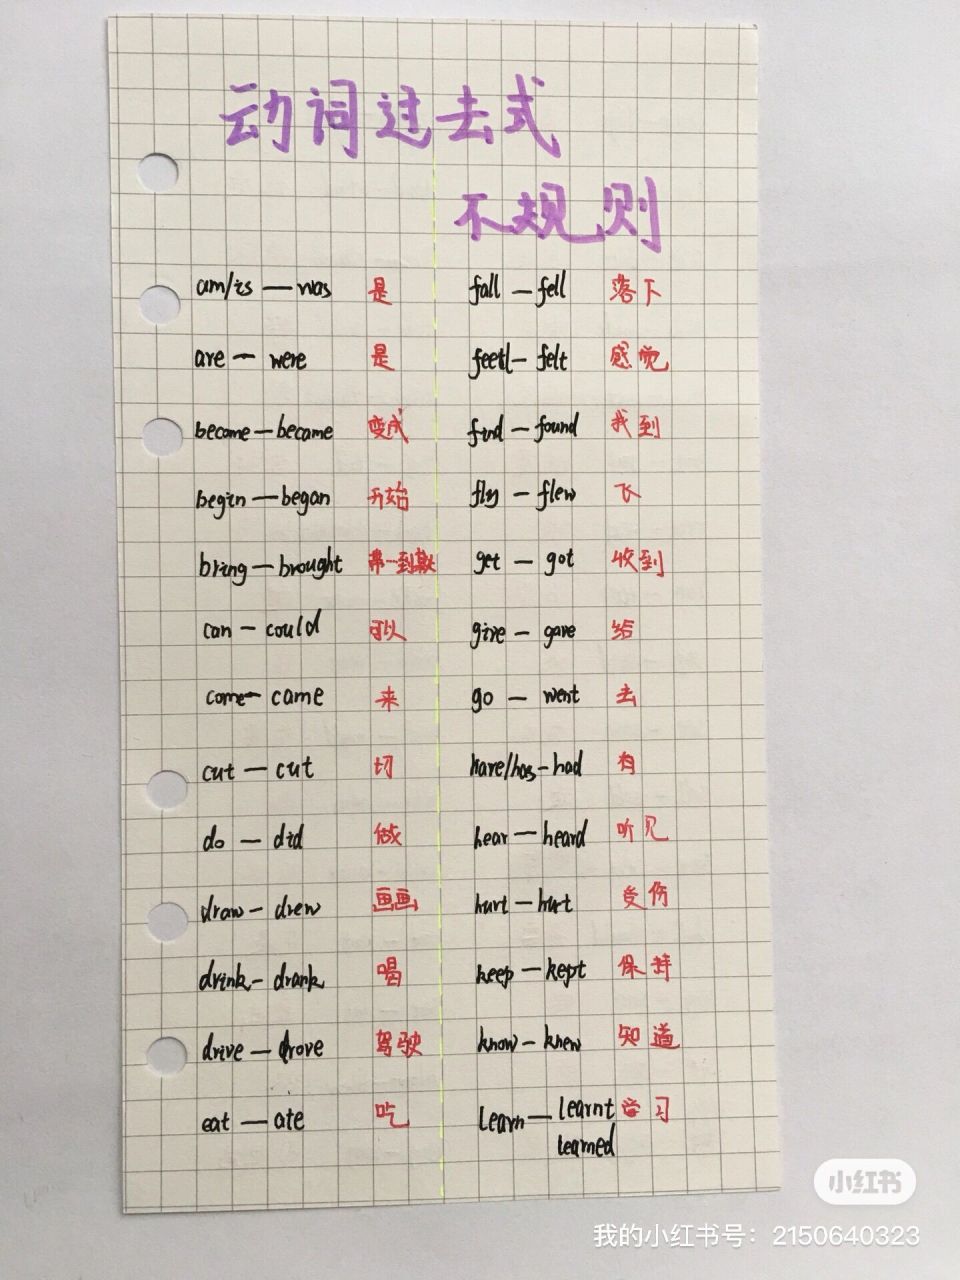 动词过去式
不规则
am/is — was 是
are — were 是
become — became 变成
begin — began 开始
bring — brought
can — could 可以
come — came 来
cut — cut 切
do — did 做
draw — drew 画画
drink — drank 喝
drive — drove 驾驶
eat — ate 吃
fall — fell 落下
feetl — felt 感觉
find — found 找到
fly — flew 飞
get — got 收到
give — gave 给
go — went 去
have/has — had 有
hear — heard 听见
hurt — hurt 受伤
keep — kept 保持
know — knew 知道
learn — learnt 学习
learned
小红书
我的小红书号：2150640323